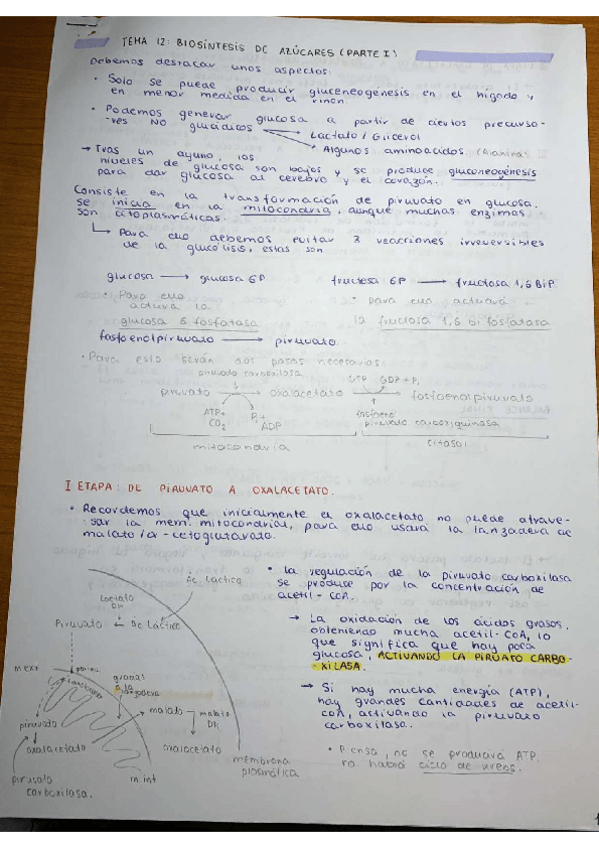 TEMA 12: BIOSÍNTESIS DE AZÚCARES (PARTE I)
Debemos destacar unos aspectos:
• Solo se puede producir gluceneogénesis en el hígado y
en menor medida en el riñón.
• Podemos generar glucosa a partir de ciertos precurso-
-res NO glucídicos
Lactato / Glicerol
Algunos aminoácidos (Alanina)
→ Tras un ayuno, los
niveles de glucosa son bajos y se produce gluconeogénesis
para dar glucosa al cerebro y el corazón.
Consiste en la transformación de piruvato en glucosa.
se inicia en la mitocondria, aunque muchas enzimas
son citoplasmáticas.
Para ello debemos evitar 3 reacciones irreversibles
de la glucólisis, estas son
glucosa → glucosa 6P fructosa 6P → fructosa 1,6 BiP
• Para ello
actúa la
glucosa 6 fosfatasa
• Para ello actuará
la fructosa 1,6 bifosfatasa
fosfoenolpiruvato → piruvato.
• Para esto serán dos pasos necesarios
piruvato carboxilasa
GTP GDP + Pi
piruvato → oxalacetato → fosfoenolpiruvato
ATP+
CO2
Pi+
ADP
piruvato carboxiquinasa
mitocondria
citosol
I ETAPA: DE PIRUVATO A OXALACETATO.
• Recordemos que inicialmente el oxalacetato no puede atrave-
-sar la mem. mitocondrial, para ello usará la lanzadera de
malato / α-cetoglutarato.
• La regulación de la piruvato carboxilasa
se produce por la concentración de
acetil-CoA.
→ La oxidación de los ácidos grasos.
obteniendo mucha acetil-CoA, lo
que significa que hay poca
glucosa, ACTIVANDO LA PIRUATO CARBO-
-XILASA.
→ Si hay mucha energía (ATP),
hay grandes cantidades de acetil-
CoA, activando la piruvato
carboxilasa.
• Piensa, no se producirá ATP.
no habrá ciclo de Krebs.
Ac. Láctico
Lactato
DH
Piruvato ← Ac Láctico
m ext
gracias
a la
lanzadera
piruvato
oxalacetato
piruvato
carboxilasa.
malato → malato
DH
oxalacetato
m. int
membrana
plasmática